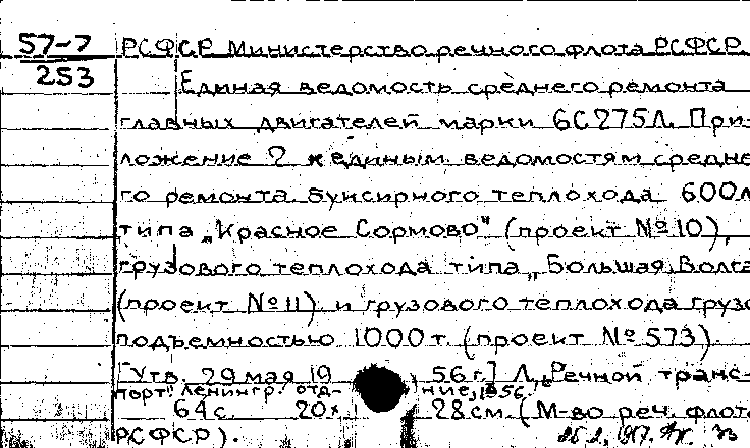 57-7 РСФСР Министерство речного флота РСФСР.
253 Единая ведомость среднего ремонта
главных двигателей марки 6С275Л. При-
ложение 2 к единым ведомостям средне
го ремонта буксирного теплохода 600л
типа „Красное Сормово" (проект №10),
грузового теплохода типа „Большая Волга
(проект №11) и грузового теплохода грузо
подъемностью 1000т (проект №573).
[Утв. 29 мая 1956г.] Л., „Речной транс-
порт". Ленингр. отд-ние, 1956.
64с. 20х28см. (М-во реч. флот
РСФСР).